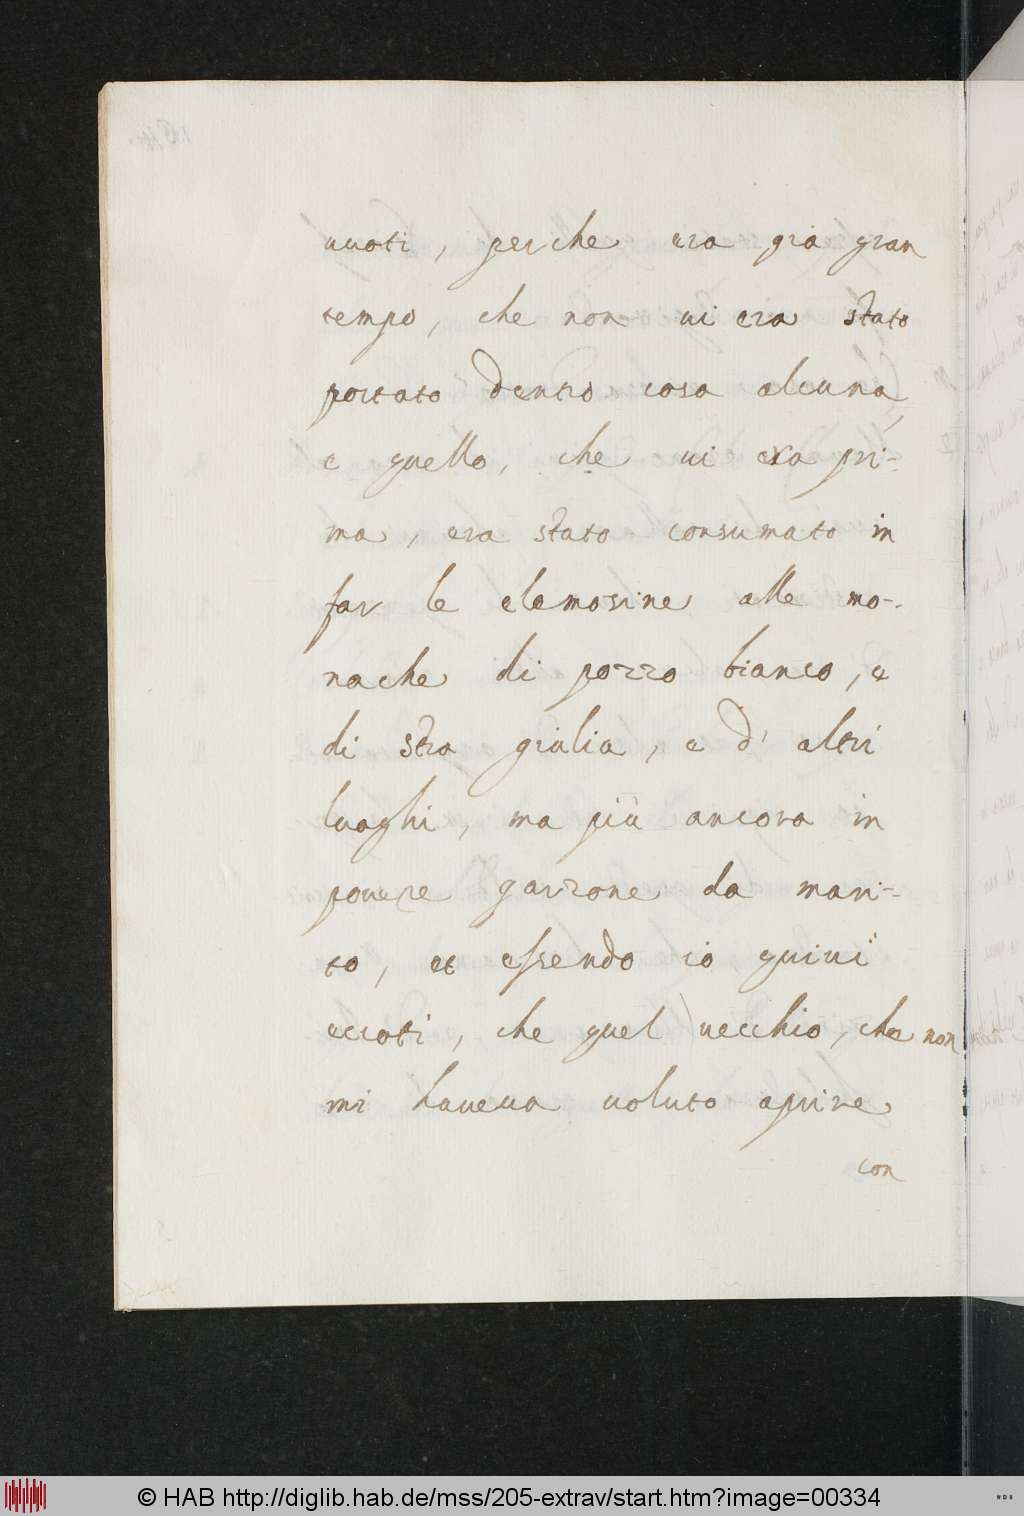 uuoti, perche era già gran
tempo, che non ui era stato
portato dentro cosa alcuna,
e quello, che ui era pri-
ma, era stato consumato in
far le elemosine alle mo-
nache di pozzo bianco, e
di stra giulia, e d' altri
luoghi, ma più ancora in
pouere garzone da mari-
to, et essendo io quiui
eccoti, che quel uecchio, che non
mi haueua uoluto aprire
con
© HAB http://diglib.hab.de/mss/205-extrav/start.htm?image=00334